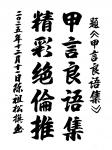 题《甲言良语集》
甲言良语集
精彩绝伦推
二〇二五年十二月十日徐祖松撰书